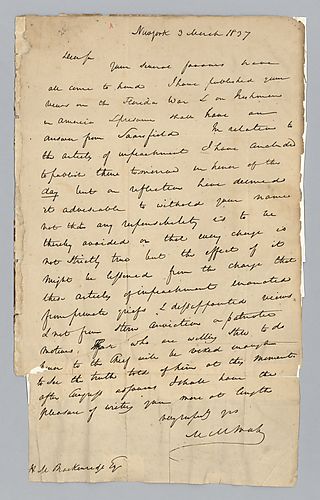 Newyork 3 March 1837
Dear Sir
Your several favours have
all come to hand I have published your
views on the Florida War & on Irishmen
in America I presume shall have an
answer from Saarsfield. In relation to
the articles of impeachment I have concluded
to publish them tomorrow in honor of the
day but on reflection have deemed
it adviseable to withold your name
not that any responsibility is to be
thereby avoided or that every charge is
not strictly true but the effect of it
might be lessened from the charge that
these articles of impeachment emanated
from private griefs & disappointed views
& not from stern conviction or patriotic
motives. who are willing still to do
honor to the chief will be vexed enough
to see the truth told of him at this moment
after Congress adjourns I shall have the
pleasure of writing you more at length
very respfy yrs
M M Noah
H M Brackenridge Esq